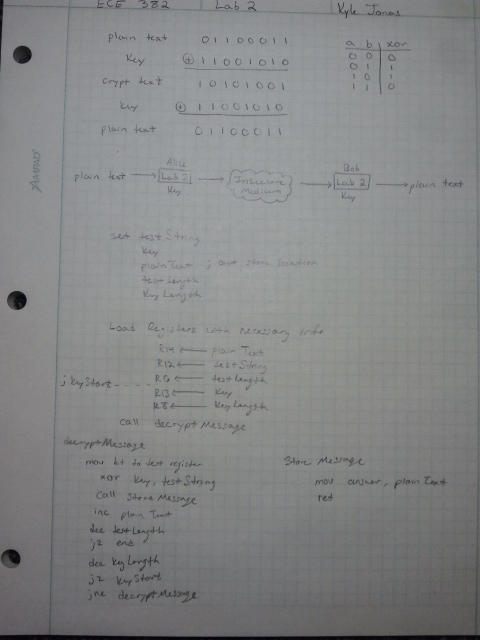 ECE 382 Lab 2 Kyle Jonas
plain text 01100011
Key ⊕ 11001010
crypt text 10101001
key ⊕ 11001010
plain text 01100011
a b xor
0 0 0
0 1 1
1 0 1
1 1 0
AMPAD
Alice
plain text → Lab 2 → Insecure Medium → Lab 2 → plain text
Key
Bob
Key
set test String
Key
plain Text ; ans store location
test length
Key Length
Load Registers with necessary info
R14 ← plain Text
R12 ← test String
; keyStart ---- ← test length
R13 ← Key
R8 ← Key Length
call decrypt Message
decrypt Message
mov bt to test register
xor key, test String
call Store Message
inc plain Text
dec test Length
jz end
dec key Length
jz key Start
jnz decrypt Message
Store Message
mov answer, plain Text
ret